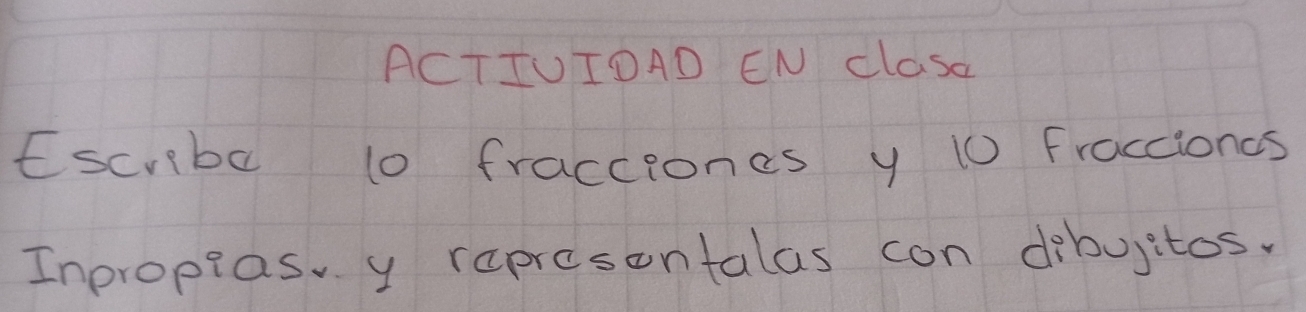 ACTIVIDAD EN clase
Escribe 10 fracciones y 10 fracciones
Inpropias. y representalas con dibujitos.